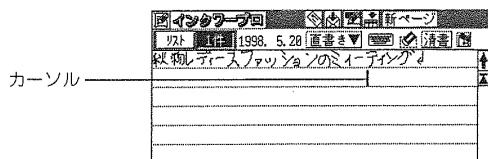 インクワープロ 新ページ
リスト 1件 1998. 5.20 直書き▼ 清書
秋物レディースファッションのミィーティング
カーソル